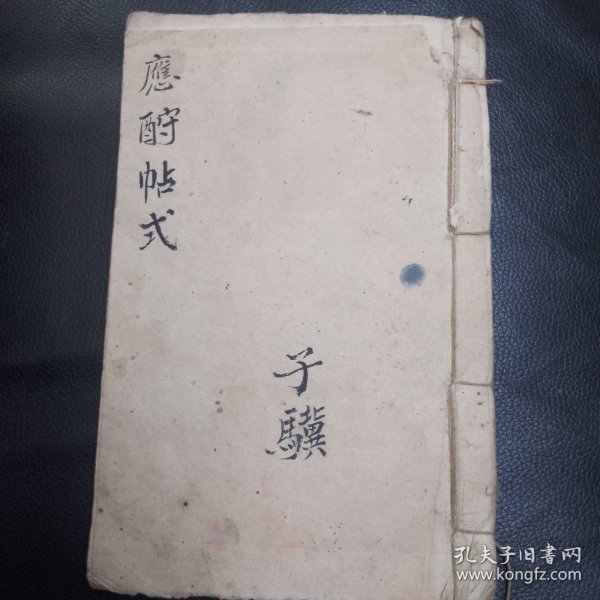 應酧帖式
子驥
孔夫子旧书网
www.kongfz.com